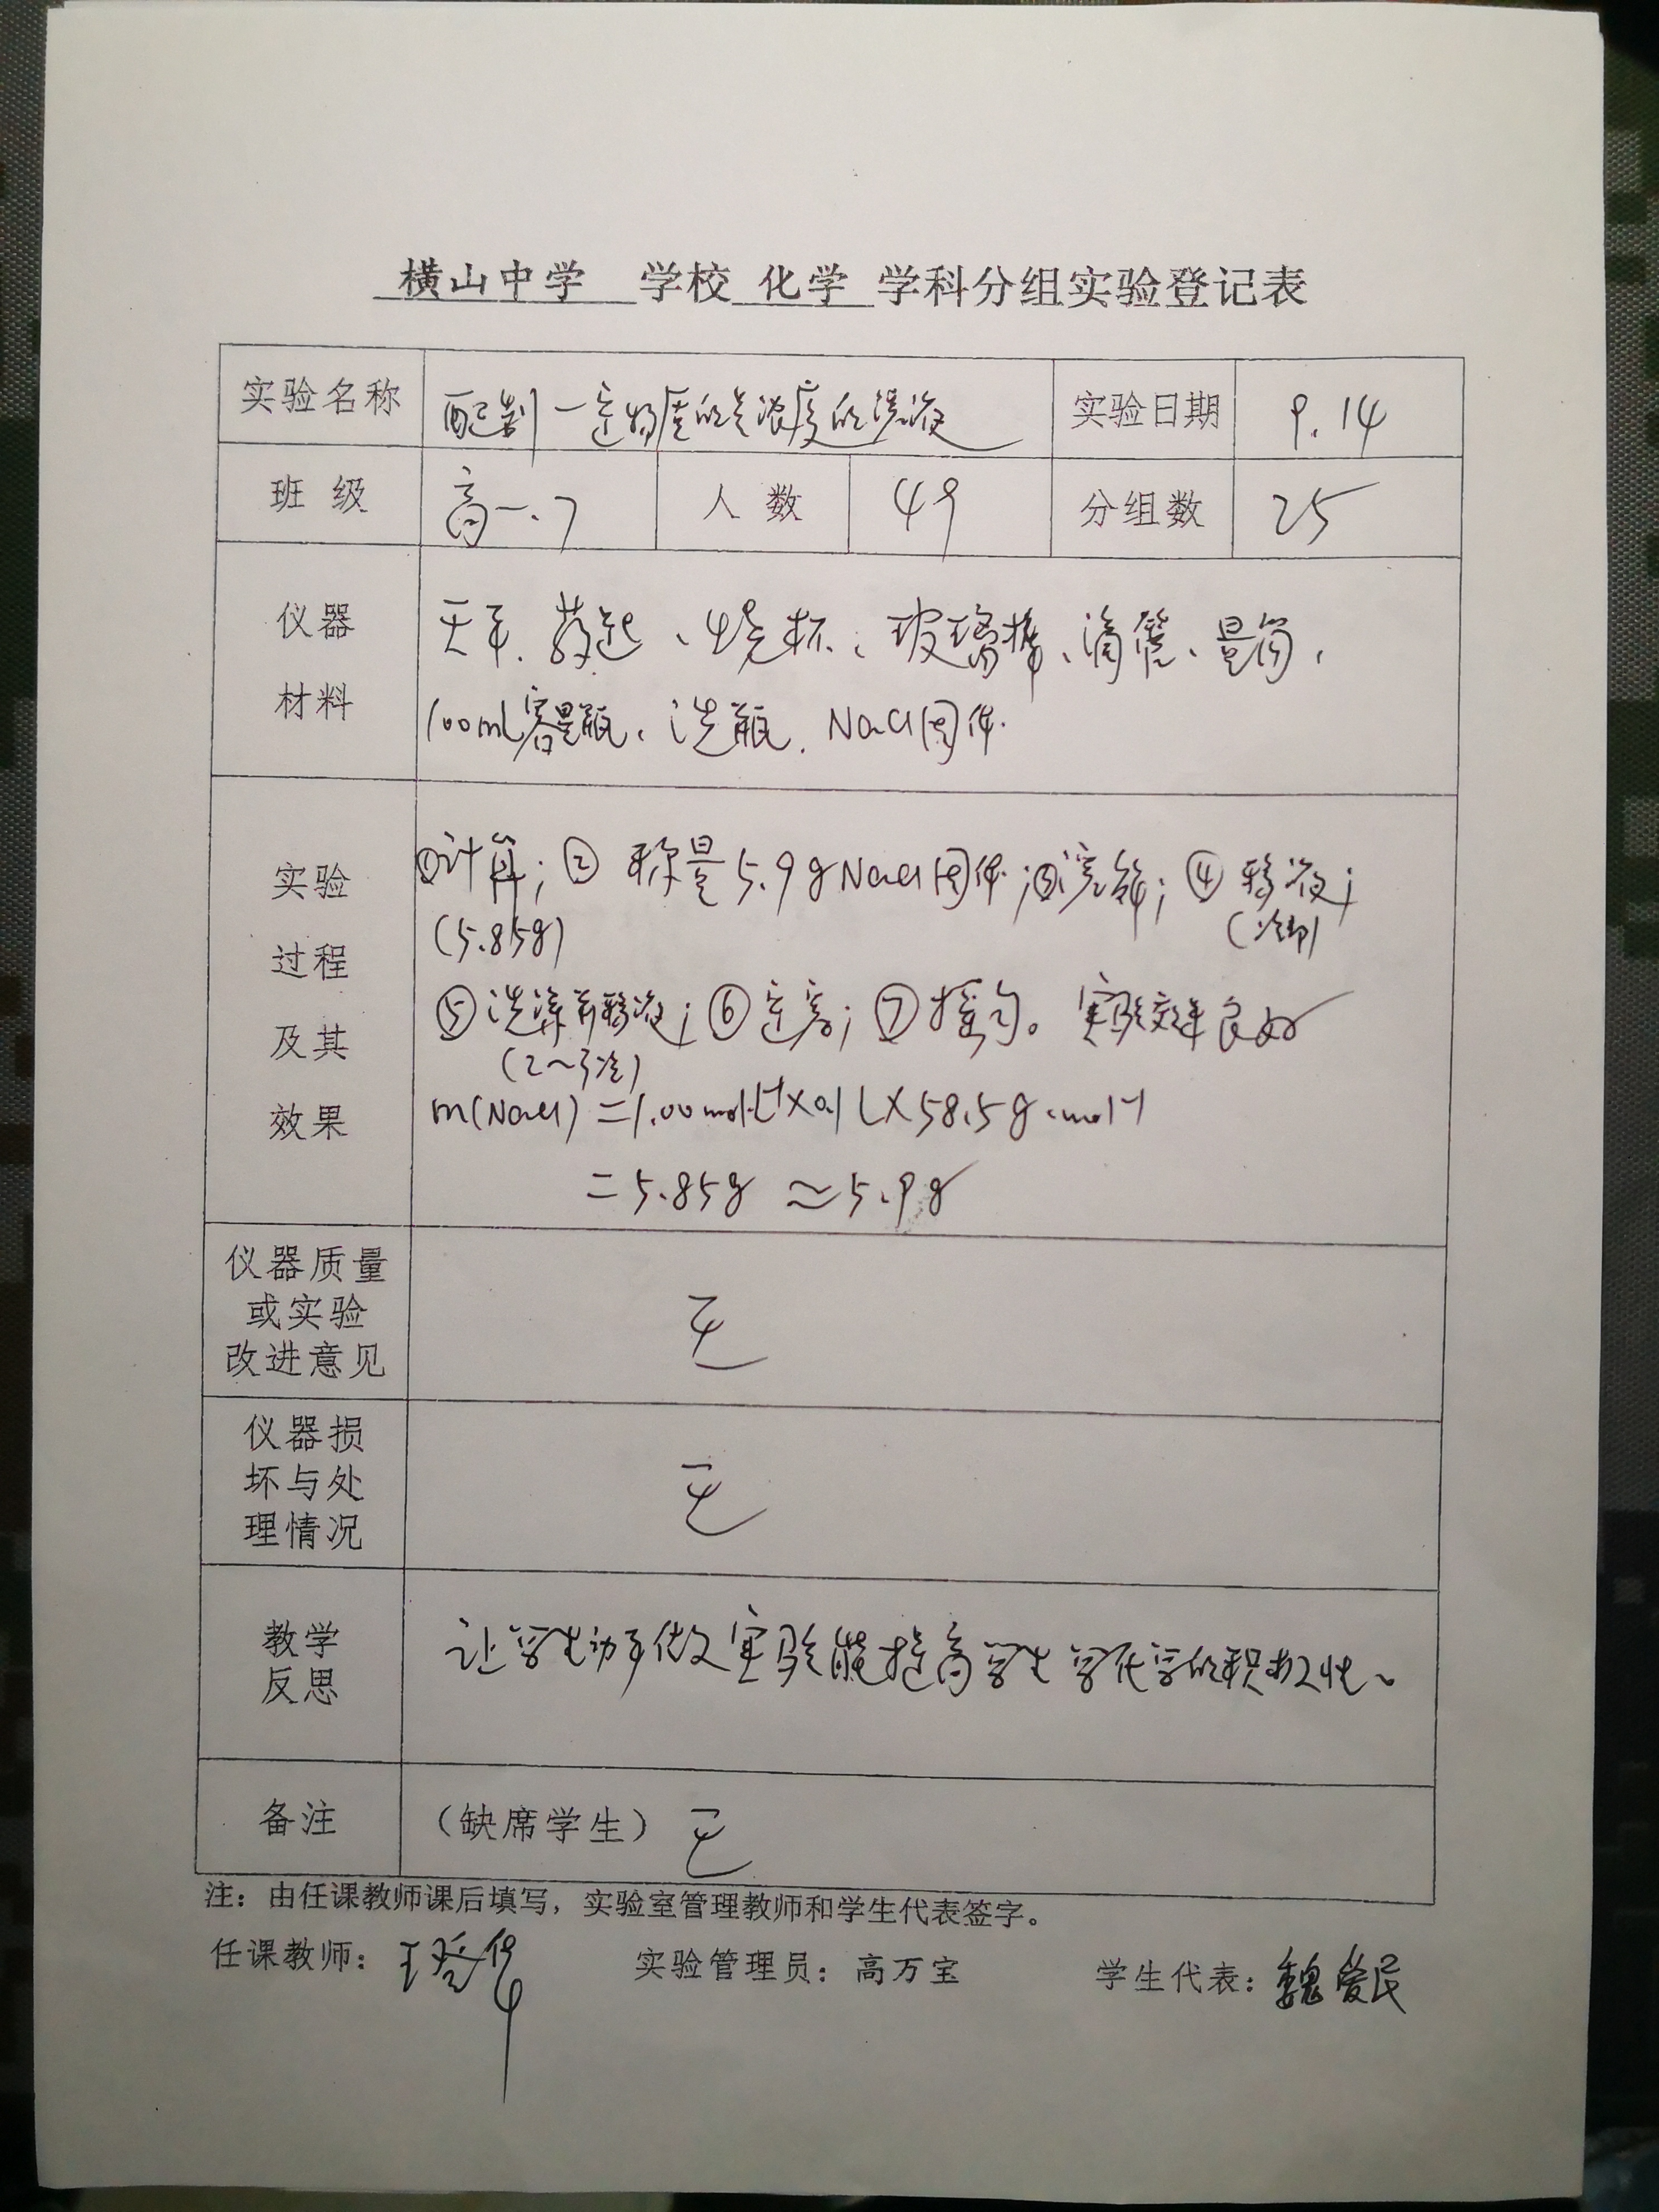 横山中学 学校 化学 学科分组实验登记表
实验名称 配制一定物质的量浓度的溶液 实验日期 9.14
班级 高一.7 人数 49 分组数 25
仪器材料
天平、药匙、烧杯、玻璃棒、滴管、量筒、
100mL容量瓶、洗瓶、NaCl固体.
实验过程及其效果
①计算;② 称量5.9gNaCl固体;③溶解;④移液;
(5.85g) (冷却)
⑤洗涤并移液;⑥定容;⑦摇匀。实验效果良好
(2~3次)
m(NaCl)=1.00mol·L⁻¹×0.1L×58.5g·mol⁻¹
=5.85g ≈5.9g
仪器质量或实验改进意见 无
仪器损坏与处理情况 无
教学反思 让学生动手做实验能提高学生学化学的积极性。
备注 (缺席学生) 无
注:由任课教师课后填写,实验室管理教师和学生代表签字。
任课教师:王 实验管理员:高万宝 学生代表:魏爱民